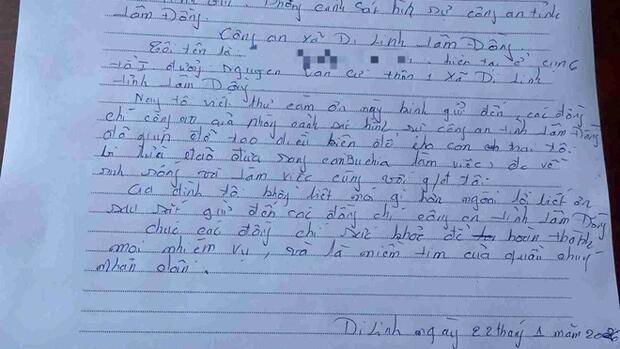 Phòng cảnh sát hình sự công an tỉnh
Lâm Đồng.
Công an xã Di Linh Lâm Đồng.
Tôi tên là hiện tại ở
đường Nguyễn Văn Cừ thôn 1 xã Di Linh
tỉnh Lâm Đồng
Nay tô viết thư cảm ơn này kính gửi đến các đồng
chí công an phòng cảnh sát hình sự công an tỉnh Lâm Đồng
đã giúp đỡ tạo điều kiện cho con trai tôi
bị lừa đảo đưa sang CamBuchia làm việc, đc về
sinh sống với làm việc cùng với g/đ tôi.
Gia đình tôi không biết nói gì hơn ngoài lời biết ơn
sâu sắc gửi đến các đồng chí công an tỉnh Lâm Đồng
chúc các đồng chí sức khỏe để hoàn thành
mọi nhiệm vụ, và là niềm tin của quần chúng
nhân dân.
Di Linh ngày 22 tháng 1 năm